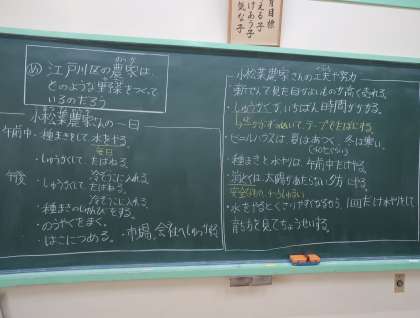 月目標
える子
けあう子
気な子
め 江戸川区の農家は、
どのような野菜をつくって
いるのだろう
小松菜農家さんの一日
午前中・種まきをして水をやる。
毎日
・しゅうかくして、たばねる。
冷ぞうこに入れる。
午後・しゅうかくして、たばねる。
冷ぞうこに入れる。
・種まきのじゅんびをする。
・のうやくをまく。
・はこにつめる。・市場、会社へしゅっ
小松菜農家さんの工夫や努力
・新せんで見た目がよいものが高く売れる。
・しゅうかくが、いちばん時間がかかる。
テープでたばにする。
・ビニールハウスは、夏はあつく、冬は寒い。
・種まきと水やりは午前中だけやる。
・消どくは、太陽があたらない夕方にやる。
・水をやるとくさりやすくなるから、1回だけ水やりをして
育ち方を見てちょうせいする。